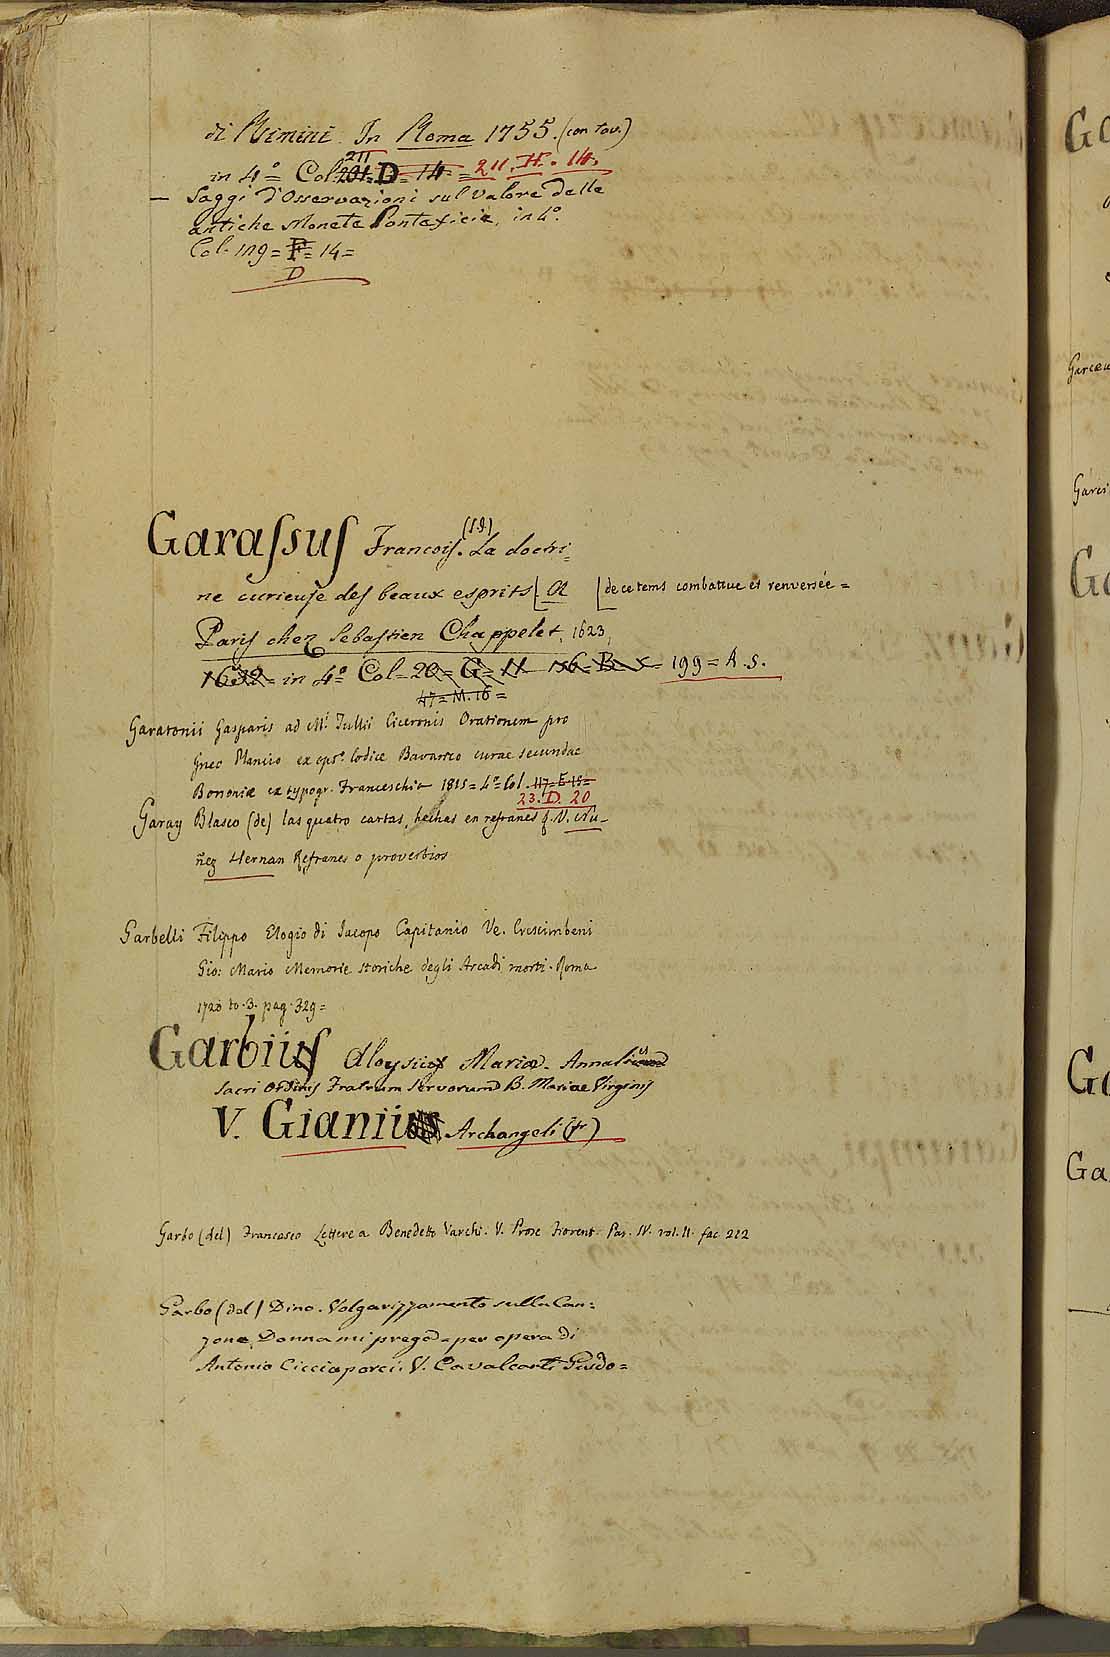 di Rimini. In Roma 1755. (con tav.)
211
in 4º = Col. 201. D = 14 = 211. H. 14.
— Saggi d'Osservazioni sul valore delle
antiche Monete Pontificie, in 4º.
Col. 119 = F = 14 =
D
(S.J.)
Garaſsuſ Francoiſ. La doctri=
ne curieuſe deſ beaux esprits [A [de ce tems combattue et renversée =
Pariſ chez Sebaſtien Chappelet, 1623,
1632 = in 4º = Col = 20 = G = 11 156 = B = 5 = 199 = A. 5.
47 = M. 16 =
Garatonii Gasparis ad M. Tullii Ciceronis Orationem pro
Gneo Plancio ex Codice Bavarico curae secundae
Bononiæ ex typogr. Franceschi 1815 = 4º Col. 117 = E 15 =
23. D. 20
Garay Blasco (de) las quatro cartas, hechas en refranes V. Nu-
ñez Hernan Refranes o proverbios
Garbelli Filippo Elogio di Jacopo Capitanio Ve. Crescimbeni
Gio: Mario Memorie storiche degli Arcadi morti. Roma
1720 to. 3. pag. 329 =
Garbii Aloysii Mariæ. Annales
Sacri Ordinis Fratrum Servorum B. Mariae Virginis
V. Gianii Archangeli (fr)
Garbo (del) Francesco Lettere a Benedetto Varchi. V. Prose Fiorent. Par. IV. vol. II. fac. 212
Garbo (del) Dino. Volgarizzamento sulla Can=
zone, Donna mi prego = per opera di
Antonio Cicciaporci. V. Cavalcanti Guido =
Garcæu
Garci